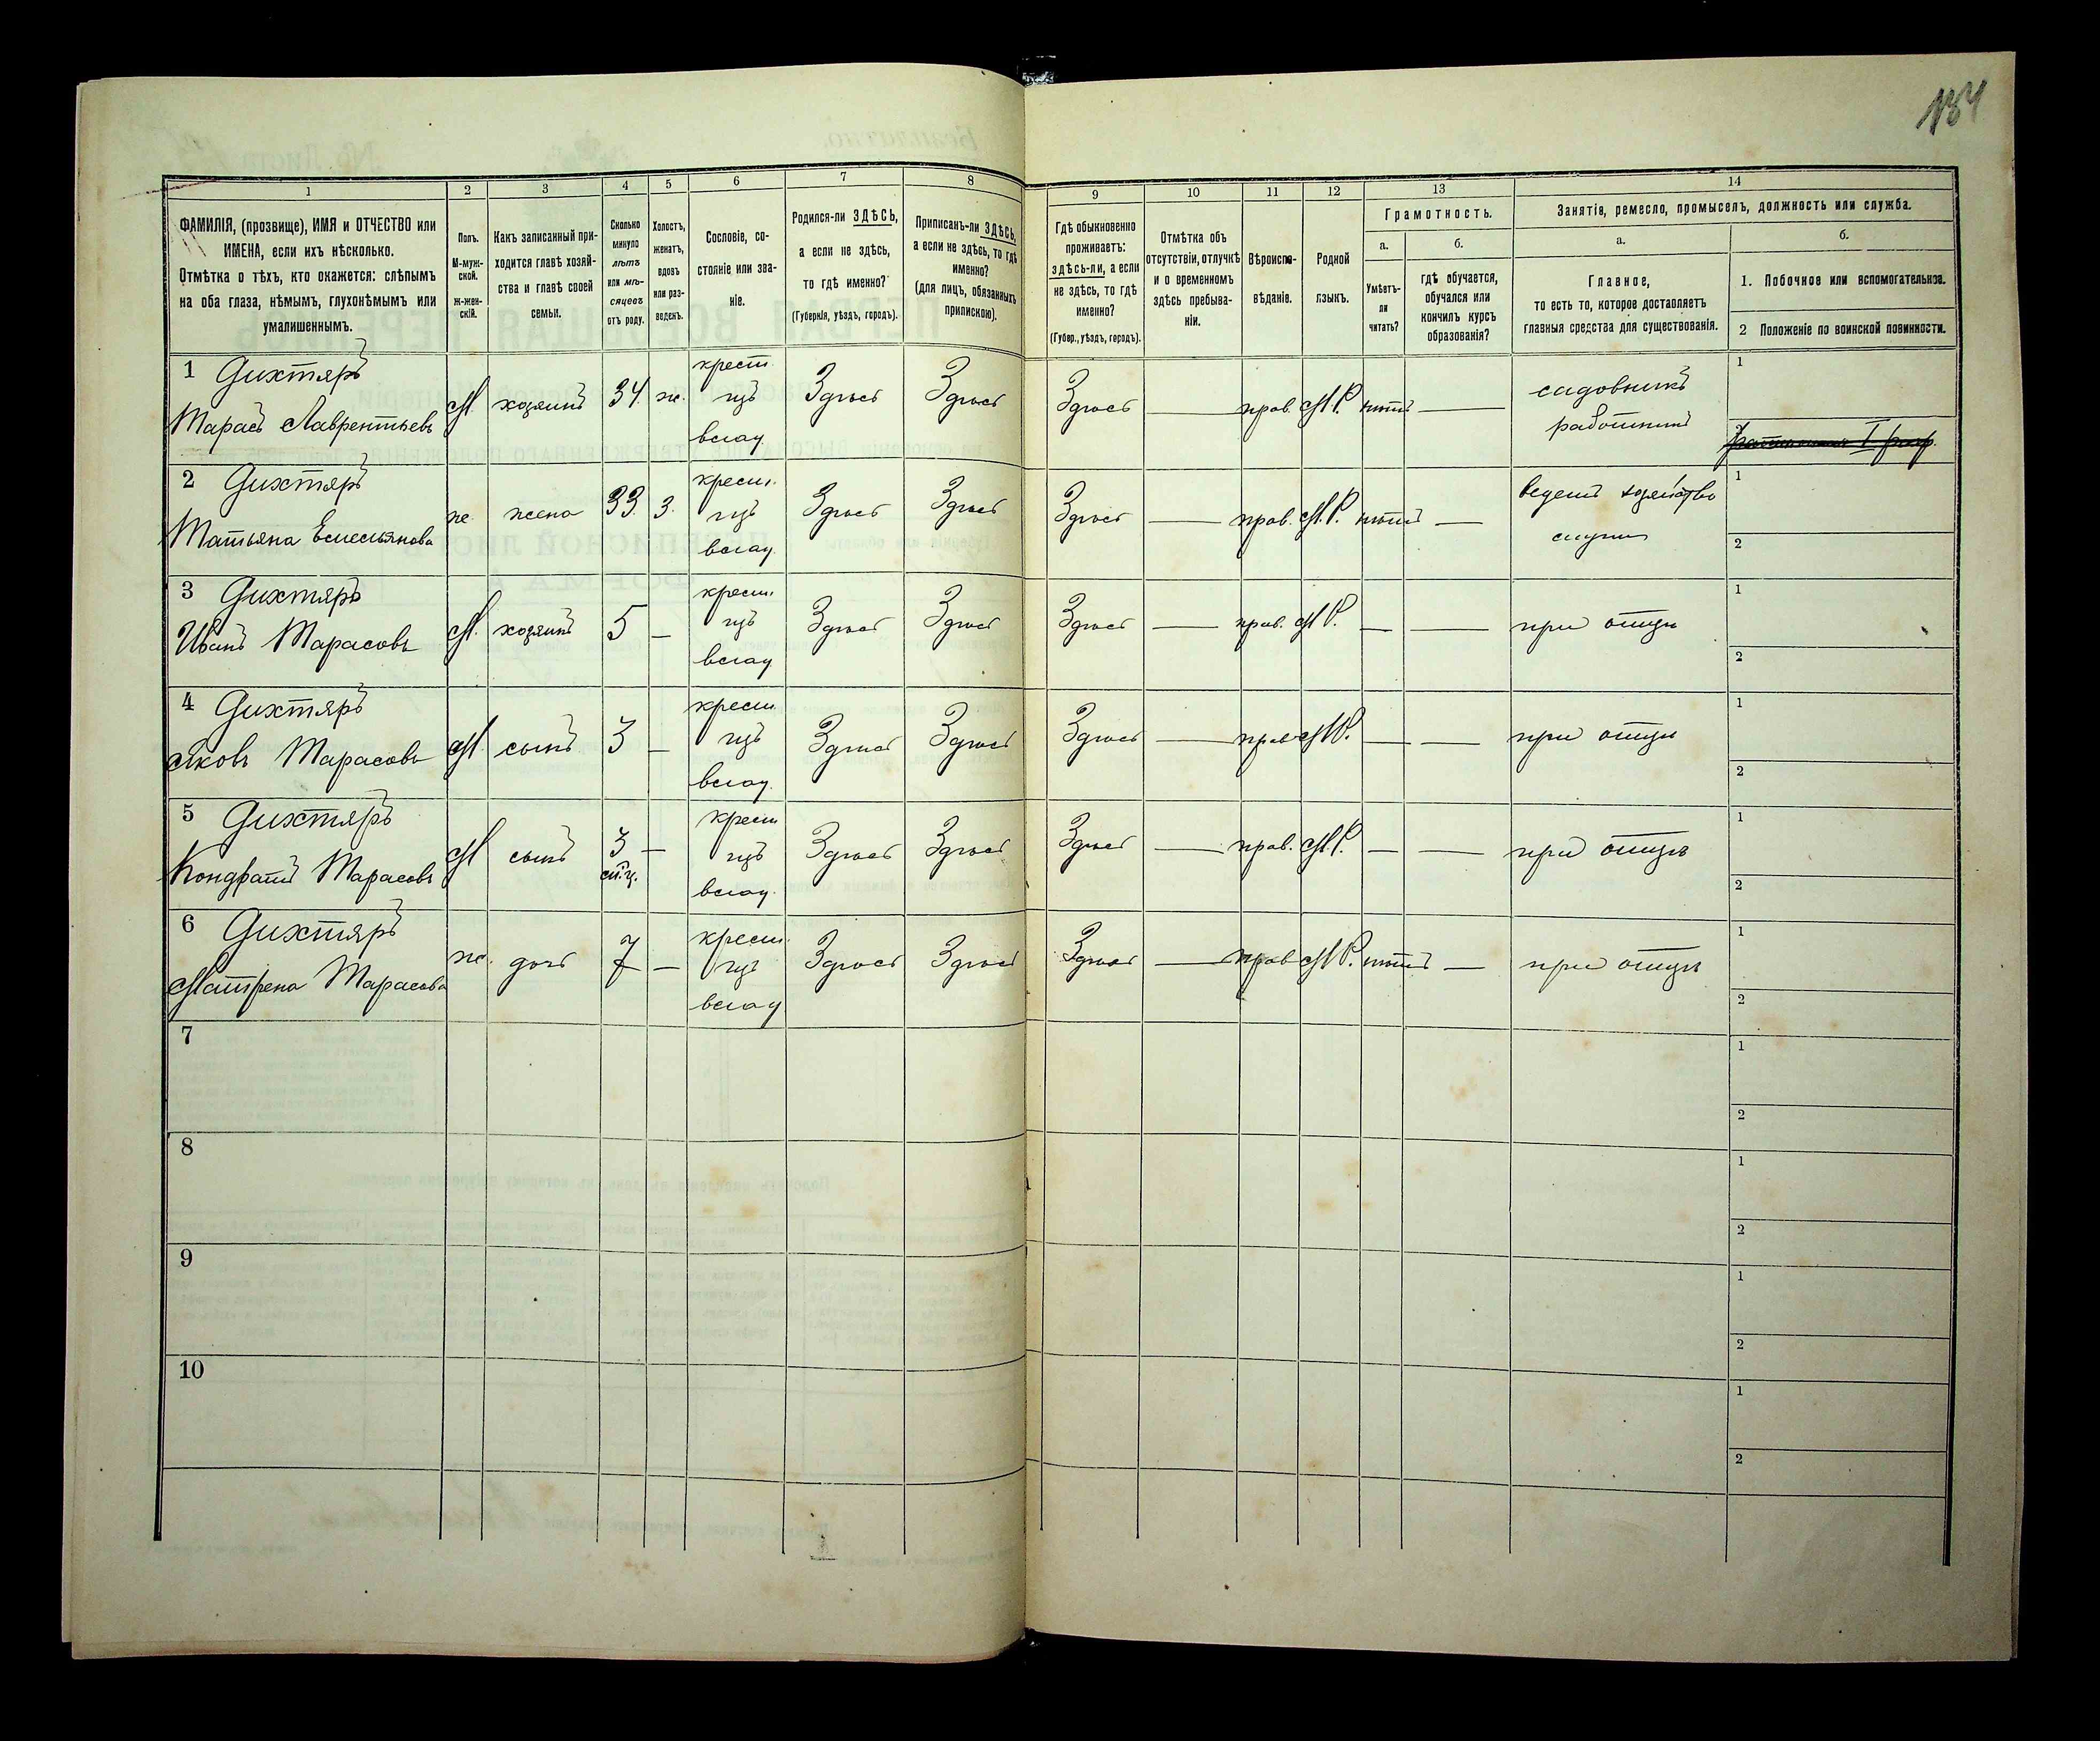 184
1
2
3
4
5
6
7
8
9
10
11
12
13
14
ФАМИЛІЯ, (прозвище), ИМЯ и ОТЧЕСТВО или
ИМЕНА, если ихъ нѣсколько.
Отмѣтка о тѣхъ, кто окажется: слѣпымъ
на оба глаза, нѣмымъ, глухонѣмымъ или
умалишеннымъ.
Полъ.
М-муж-
ской.
ж-жен-
скій.
Какъ записанный при-
ходится главѣ хозяй-
ства и главѣ своей
семьи.
Сколько
минуло
лѣтъ
или мѣ-
сяцевъ
отъ роду.
Холостъ,
женатъ,
вдовъ
или раз-
веденъ.
Сословіе, со-
стояніе или зва-
ніе.
Родился-ли ЗДѢСЬ,
а если не здѣсь,
то гдѣ именно?
(Губернія, уѣздъ, городъ).
Приписанъ-ли ЗДѢСЬ,
а если не здѣсь, то гдѣ
именно?
(для лицъ, обязанныхъ
припискою).
Гдѣ обыкновенно
проживаетъ:
здѣсь-ли, а если
не здѣсь, то гдѣ
именно?
(Губер., уѣздъ, городъ).
Отмѣтка объ
отсутствіи, отлучкѣ
и о временномъ
здѣсь пребыва-
ніи.
Вѣроиспо-
вѣданіе.
Родной
языкъ.
Грамотность.
а.
Умѣетъ-
ли
читать?
б.
гдѣ обучается,
обучался или
кончилъ курсъ
образованія?
Занятіе, ремесло, промыселъ, должность или служба.
а.
Главное,
то есть то, которое доставляетъ
главныя средства для существованія.
б.
1. Побочное или вспомогательное.
2 Положеніе по воинской повинности.
1 Дихтяръ
Тарасъ Лаврентьевъ
М. хозяинъ 34. ж.
крест.
изъ
влад.
Здѣсь Здѣсь Здѣсь — прав. М.Р. нѣтъ —
садовникъ
работникъ
1
2
2 Дихтяръ
Татьяна Емельянова
же. жена 33. з.
крест.
изъ
влад.
Здѣсь Здѣсь Здѣсь — прав. М.Р. нѣтъ —
ведетъ хозяйство
1
2
3 Дихтяръ
Иванъ Тарасовъ
М. хозяинъ 5 —
крест.
изъ
влад.
Здѣсь Здѣсь Здѣсь — прав. М.Р. — — при отцѣ
1
2
4 Дихтяръ
Яковъ Тарасовъ
М сынъ 3 —
крест.
изъ
влад.
Здѣсь Здѣсь Здѣсь — прав М.Р. — — при отцѣ
1
2
5 Дихтяръ
Кондратъ Тарасовъ
М сынъ 3 —
крест
изъ
влад.
Здѣсь Здѣсь Здѣсь — прав. М.Р. — — при отцѣ
1
2
6 Дихтяръ
Матрена Тарасова
же. дочь 7 —
крест.
изъ
влад
Здѣсь Здѣсь Здѣсь — прав М.Р. нѣтъ — при отцѣ
1
2
7
1
2
8
1
2
9
1
2
10
1
2